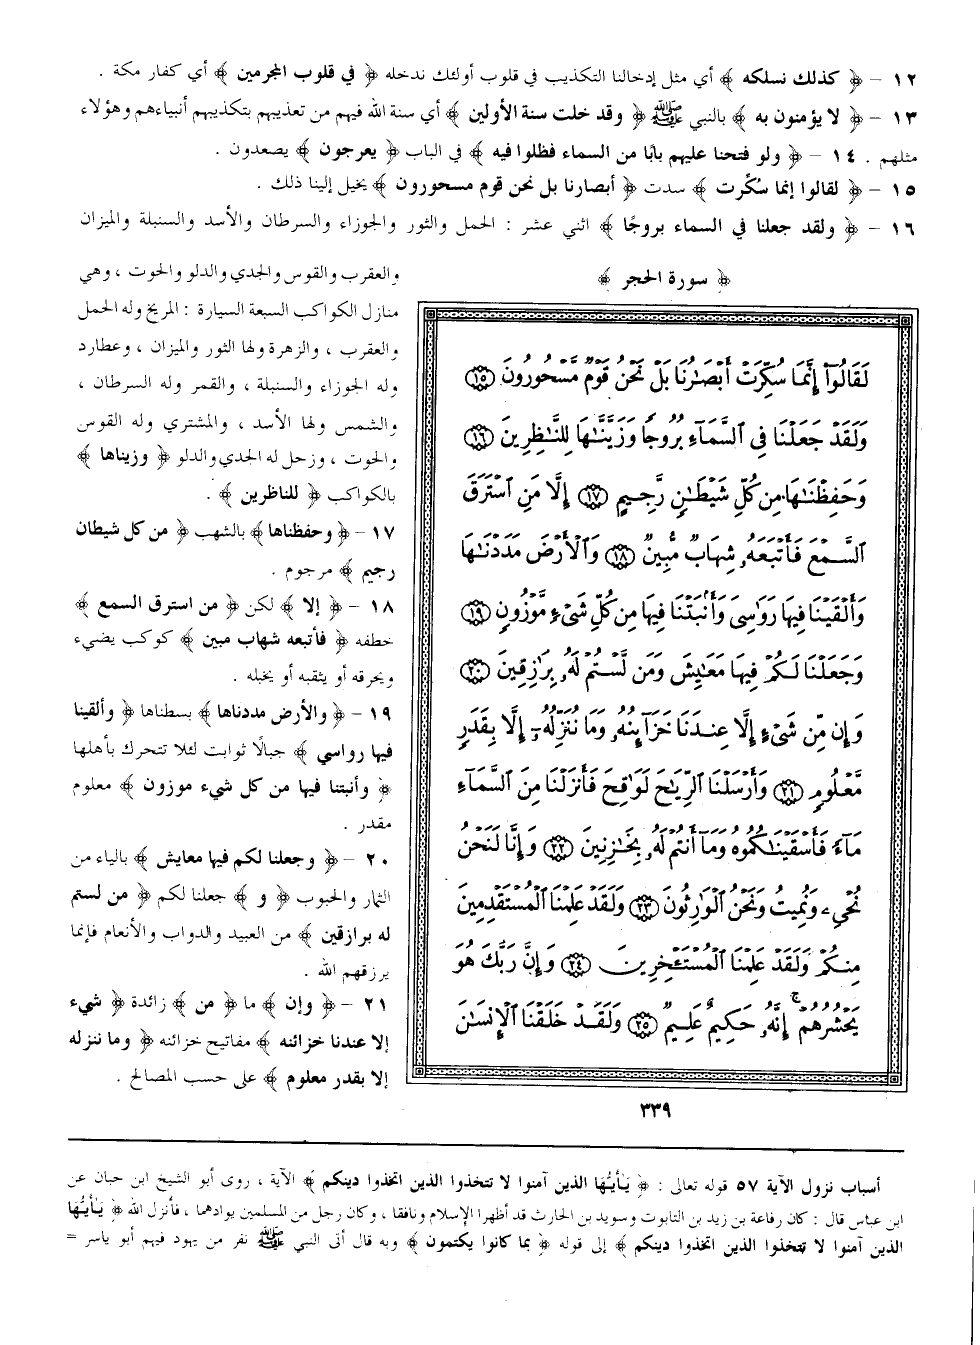 ١٢ – ﴿ كذلك نسلكه ﴾ أي مثل إدخالنا التكذيب في قلوب أولئك ندخله ﴿ في قلوب المجرمين ﴾ أي كفار مكة .
١٣ – ﴿ لا يؤمنون به ﴾ بالنبي ﷺ ﴿ وقد خلت سنة الأولين ﴾ أي سنة الله فيهم من تعذيبهم بتكذيبهم أنبياءهم وهؤلاء
مثلهم . ١٤ – ﴿ ولو فتحنا عليهم بابًا من السماء فظلوا فيه ﴾ في الباب ﴿ يعرجون ﴾ يصعدون .
١٥ – ﴿ لقالوا إنما سُكّرت ﴾ سدت ﴿ أبصارنا بل نحن قوم مسحورون ﴾ يخيل إلينا ذلك .
١٦ – ﴿ ولقد جعلنا في السماء بروجًا ﴾ اثني عشر : الحمل والثور والجوزاء والسرطان والأسد والسنبلة والميزان
والعقرب والقوس والجدي والدلو والحوت ، وهي
منازل الكواكب السبعة السيارة : المريخ وله الحمل
والعقرب ، والزهرة ولها الثور والميزان ، وعطارد
وله الجوزاء والسنبلة ، والقمر وله السرطان ،
والشمس ولها الأسد ، والمشتري وله القوس
والحوت ، وزحل له الجدي والدلو ﴿ وزيناها ﴾
بالكواكب ﴿ للناظرين ﴾ .
١٧ – ﴿ وحفظناها ﴾ بالشهب ﴿ من كل شيطان
رجيم ﴾ مرجوم .
١٨ – ﴿ إلا ﴾ لكن ﴿ من استرق السمع ﴾
خطفه ﴿ فأتبعه شهاب مبين ﴾ كوكب يضيء
ويحرقه أو يثقبه أو يخبله .
١٩ – ﴿ والأرض مددناها ﴾ بسطناها ﴿ وألقينا
فيها رواسي ﴾ جبالًا ثوابت لئلا تتحرك بأهلها
﴿ وأنبتنا فيها من كل شيء موزون ﴾ معلوم
مقدر .
٢٠ – ﴿ وجعلنا لكم فيها معايش ﴾ بالياء من
الثمار والحبوب ﴿ و ﴾ جعلنا لكم ﴿ من لستم
له برازقين ﴾ من العبيد والدواب والأنعام فإنما
يرزقهم الله .
٢١ – ﴿ وإن ﴾ ما ﴿ من ﴾ زائدة ﴿ شيء
إلا عندنا خزائنه ﴾ مفاتيح خزائنه ﴿ وما ننزله
إلا بقدر معلوم ﴾ على حسب المصالح .
﴿ سورة الحجر ﴾
لَقَالُوٓا۟ إِنَّمَا سُكِّرَتْ أَبْصَٰرُنَا بَلْ نَحْنُ قَوْمٌ مَّسْحُورُونَ ١٥
وَلَقَدْ جَعَلْنَا فِى ٱلسَّمَآءِ بُرُوجًا وَزَيَّنَّٰهَا لِلنَّٰظِرِينَ ١٦
وَحَفِظْنَٰهَا مِن كُلِّ شَيْطَٰنٍ رَّجِيمٍ ١٧ إِلَّا مَنِ ٱسْتَرَقَ
ٱلسَّمْعَ فَأَتْبَعَهُۥ شِهَابٌ مُّبِينٌ ١٨ وَٱلْأَرْضَ مَدَدْنَٰهَا
وَأَلْقَيْنَا فِيهَا رَوَٰسِىَ وَأَنۢبَتْنَا فِيهَا مِن كُلِّ شَىْءٍ مَّوْزُونٍ ١٩
وَجَعَلْنَا لَكُمْ فِيهَا مَعَٰيِشَ وَمَن لَّسْتُمْ لَهُۥ بِرَٰزِقِينَ ٢٠
وَإِن مِّن شَىْءٍ إِلَّا عِندَنَا خَزَآئِنُهُۥ وَمَا نُنَزِّلُهُۥٓ إِلَّا بِقَدَرٍ
مَّعْلُومٍ ٢١ وَأَرْسَلْنَا ٱلرِّيَٰحَ لَوَٰقِحَ فَأَنزَلْنَا مِنَ ٱلسَّمَآءِ
مَآءً فَأَسْقَيْنَٰكُمُوهُ وَمَآ أَنتُمْ لَهُۥ بِخَٰزِنِينَ ٢٢ وَإِنَّا لَنَحْنُ
نُحْىِۦ وَنُمِيتُ وَنَحْنُ ٱلْوَٰرِثُونَ ٢٣ وَلَقَدْ عَلِمْنَا ٱلْمُسْتَقْدِمِينَ
مِنكُمْ وَلَقَدْ عَلِمْنَا ٱلْمُسْتَـْٔخِرِينَ ٢٤ وَإِنَّ رَبَّكَ هُوَ
يَحْشُرُهُمْ ۚ إِنَّهُۥ حَكِيمٌ عَلِيمٌ ٢٥ وَلَقَدْ خَلَقْنَا ٱلْإِنسَٰنَ
٣٣٩
أسباب نزول الآية ٥٧ قوله تعالى : ﴿ يٰأيُّها الذين آمنوا لا تتخذوا الذين اتخذوا دينكم ﴾ الآية ، روى أبو الشيخ ابن حبان عن
ابن عباس قال : كان رفاعة بن زيد بن التابوت وسويد بن الحارث قد أظهرا الإسلام ونافقا ، وكان رجل من المسلمين يوادهما ، فأنزل الله ﴿ يٰأيُّها
الذين آمنوا لا تتخذوا الذين اتخذوا دينكم ﴾ إلى قوله ﴿ بما كانوا يكتمون ﴾ وبه قال أتى النبي ﷺ نفر من يهود فيهم أبو ياسر =